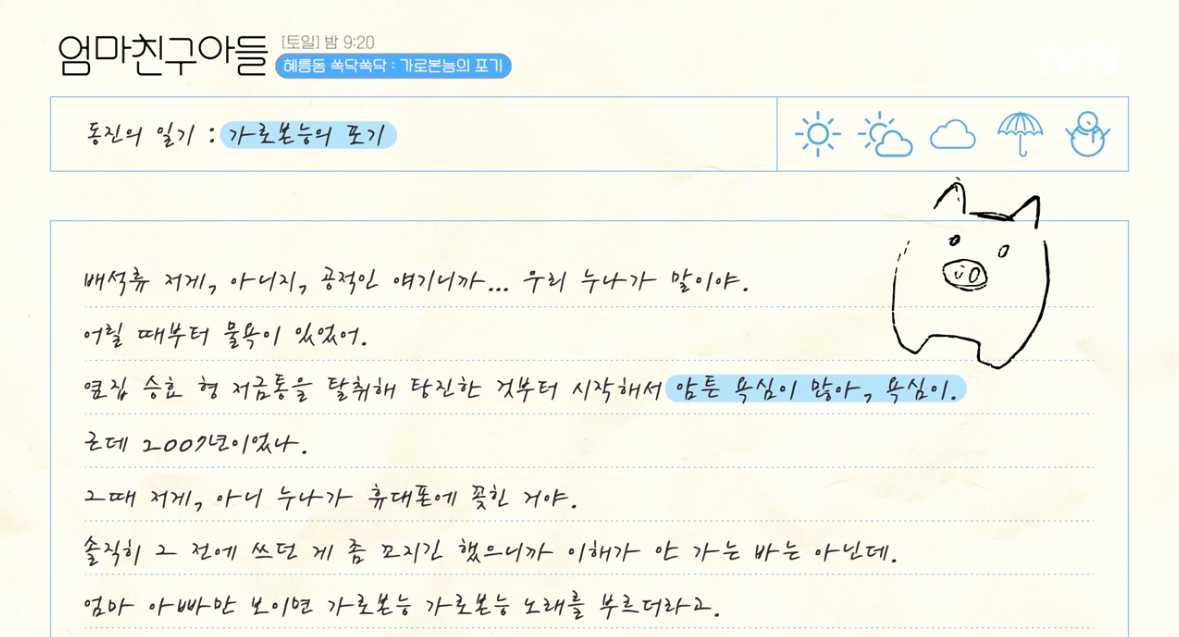 엄마친구아들
[토일] 밤 9:20
혜릉동 쏙닥쏙닥 : 가로본능의 포기
tvN
동진의 일기 : 가로본능의 포기
배석류 저게, 아니지, 공적인 얘기니까... 우리 누나가 말이야.
어릴 때부터 물욕이 있었어.
옆집 승효 형 저금통을 탈취해 탕진한 것부터 시작해서 암튼 욕심이 많아, 욕심이.
근데 2009년이었나.
그때 저게, 아니 누나가 휴대폰에 꽂힌 거야.
솔직히 그 전에 쓰던 게 좀 꼬지긴 했으니까 이해가 안 가는 바는 아닌데.
엄마 아빠만 보이면 가로본능 가로본능 노래를 부르더라고.